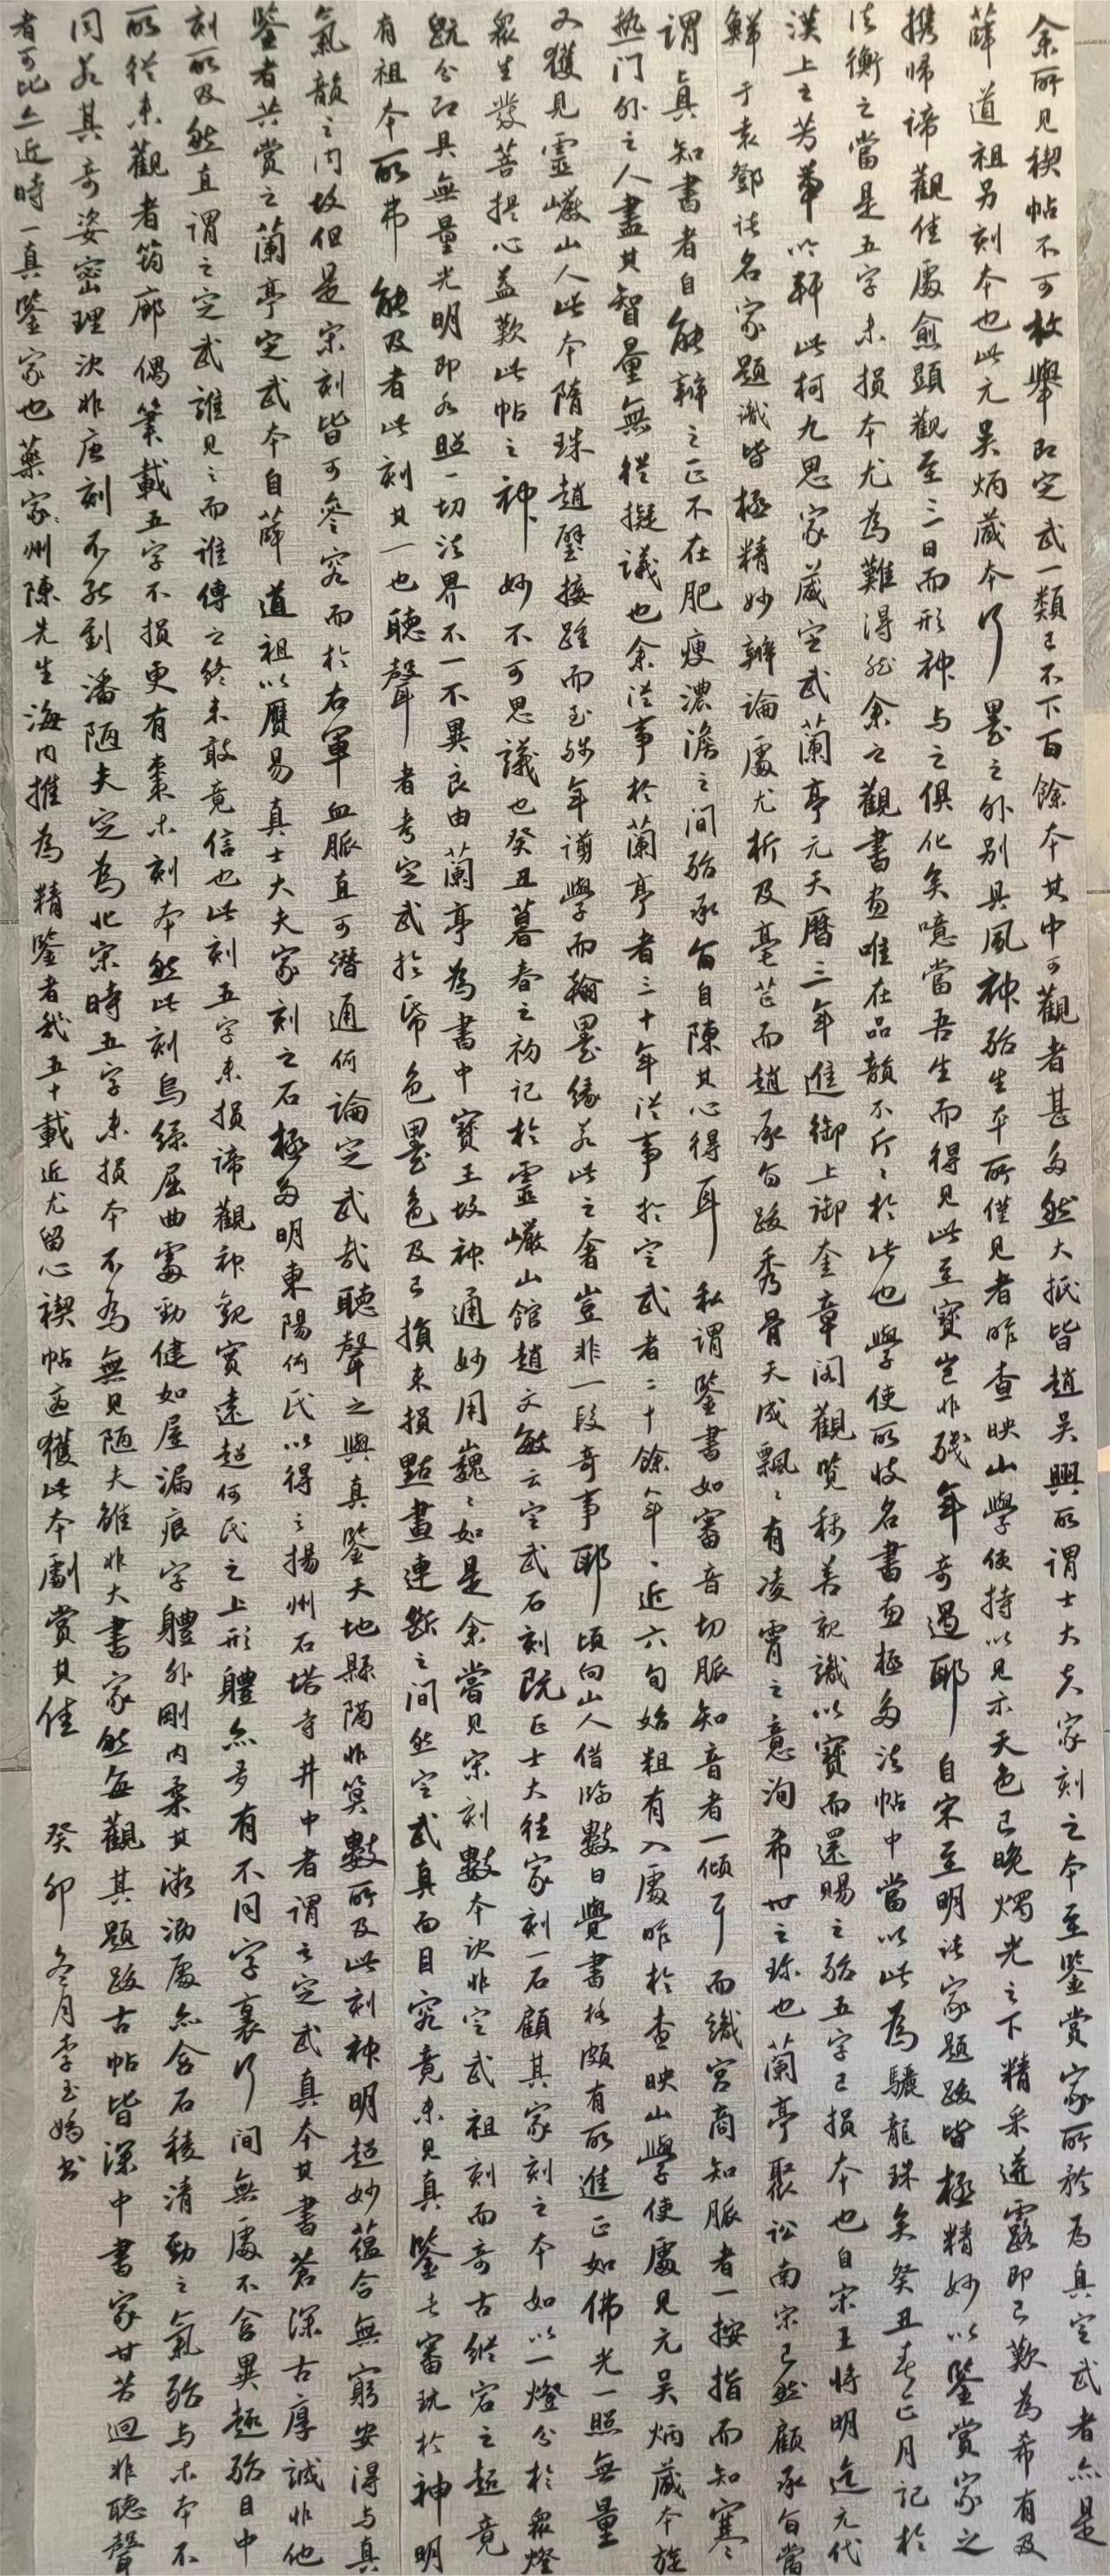 余所见禊帖不可枚舉即定武一類已不下百餘本其中可觀者甚多然大抵皆趙吳興所謂士大夫家刻之本至鑒賞家所矜為真定武者亦是
薛道祖另刻本也此元吳炳藏本行墨之外別具風神殆生平所僅見者昨查映山學使持以見示天色已晚燭光之下精采遂露即已歎為希有及
攜歸諦觀佳處愈顯觀至三日而形神與之俱化矣噫當吾生而得見此至寶豈非殘年奇遇耶自宋至明諸家題跋皆極精妙以鑒賞家之
法衡之當是五字未損本尤為難得然余之觀書畫唯在品韻不斤斤於此也學使所收名書畫極多法帖中當以此為驪龍珠矣癸丑春正月記於
漢上之芳華以軒此柯九思家藏定武蘭亭元天曆三年進御上御奎章閣觀覽稱善親識以寶而還賜之殆五字已損本也自宋王將明迄元代
鮮于袁鄧諸名家題識皆極精妙辨論處尤析及毫芒而趙承旨跋秀骨天成飄飄有凌霄之意洵希世之珍也蘭亭聚訟南宋已然顧承旨當
謂真知書者自能辨之正不在肥瘦濃澹之間殆承旨自陳其心得耳私謂鑒書如審音切脈知音者一傾耳而識宮商知脈者一按指而知寒
熱門外之人盡其智量無從擬議也余從事於蘭亭者三十年從事於定武者二十餘年年近六旬始粗有入處昨於查映山學使處見元吳炳藏本旋
又獲見靈巖山人此本隋珠趙璧接踵而至殘年谫學而翰墨緣若此之奢豈非一段奇事耶頃向山人借臨數日覺書格頗有所進正如佛光一照無量
眾生發菩提心益歎此帖之神妙不可思議也癸丑暮春之初記於靈巖山館趙文敏云定武石刻既亡士大夫家刻一石顧其家刻之本如以一燈分於眾燈
既分即具無量光明即各照一切法界不一不異良由蘭亭為書中寶王故神通妙用巍巍如是余嘗見宋刻數本決非定武祖刻而奇古縱宕之趣竟
有祖本所弗能及者此刻其一也聽聲者考定武於帋色墨色及已損未損點畫連斷之間然定武真面目究竟未見真鑒者審玩於神明
氣韻之内故但是宋刻皆可參究而於右軍血脈直可潛通何論定武哉聽聲之與真鑒天地縣隔非算數所及此刻神明超妙蘊含無窮安得与真
鑒者共賞之蘭亭定武本自薛道祖以贋易真士大夫家刻之石極多明東陽何氏以得之揚州石塔寺井中者謂之定武真本其書蒼深古厚誠非他
刻所及然直謂之定武誰見之而誰傳之終未敢竟信也此刻五字未損諦觀神觀實遠超何氏之上形體亦多有不同字裏行間無處不含異趣殆目中
所從未觀者筠廊偶筆載五字不損更有棗木刻本然此刻烏絲屈曲處勁健如屋漏痕字體外剛内柔其漫泐處亦含石稜清勁之氣殆與木本不
同若其奇姿密理決非唐刻不能到潘陋夫定為北宋時五字未損本不為無見陋夫雖非大書家然每觀其題跋古帖皆深中書家甘苦迥非聽聲
者可比亦近時一真鑒家也藥家州陳先生海内推為精鑒者幾五十載近尤留心禊帖適獲此本劇賞其佳 癸卯冬月李玉嬌书